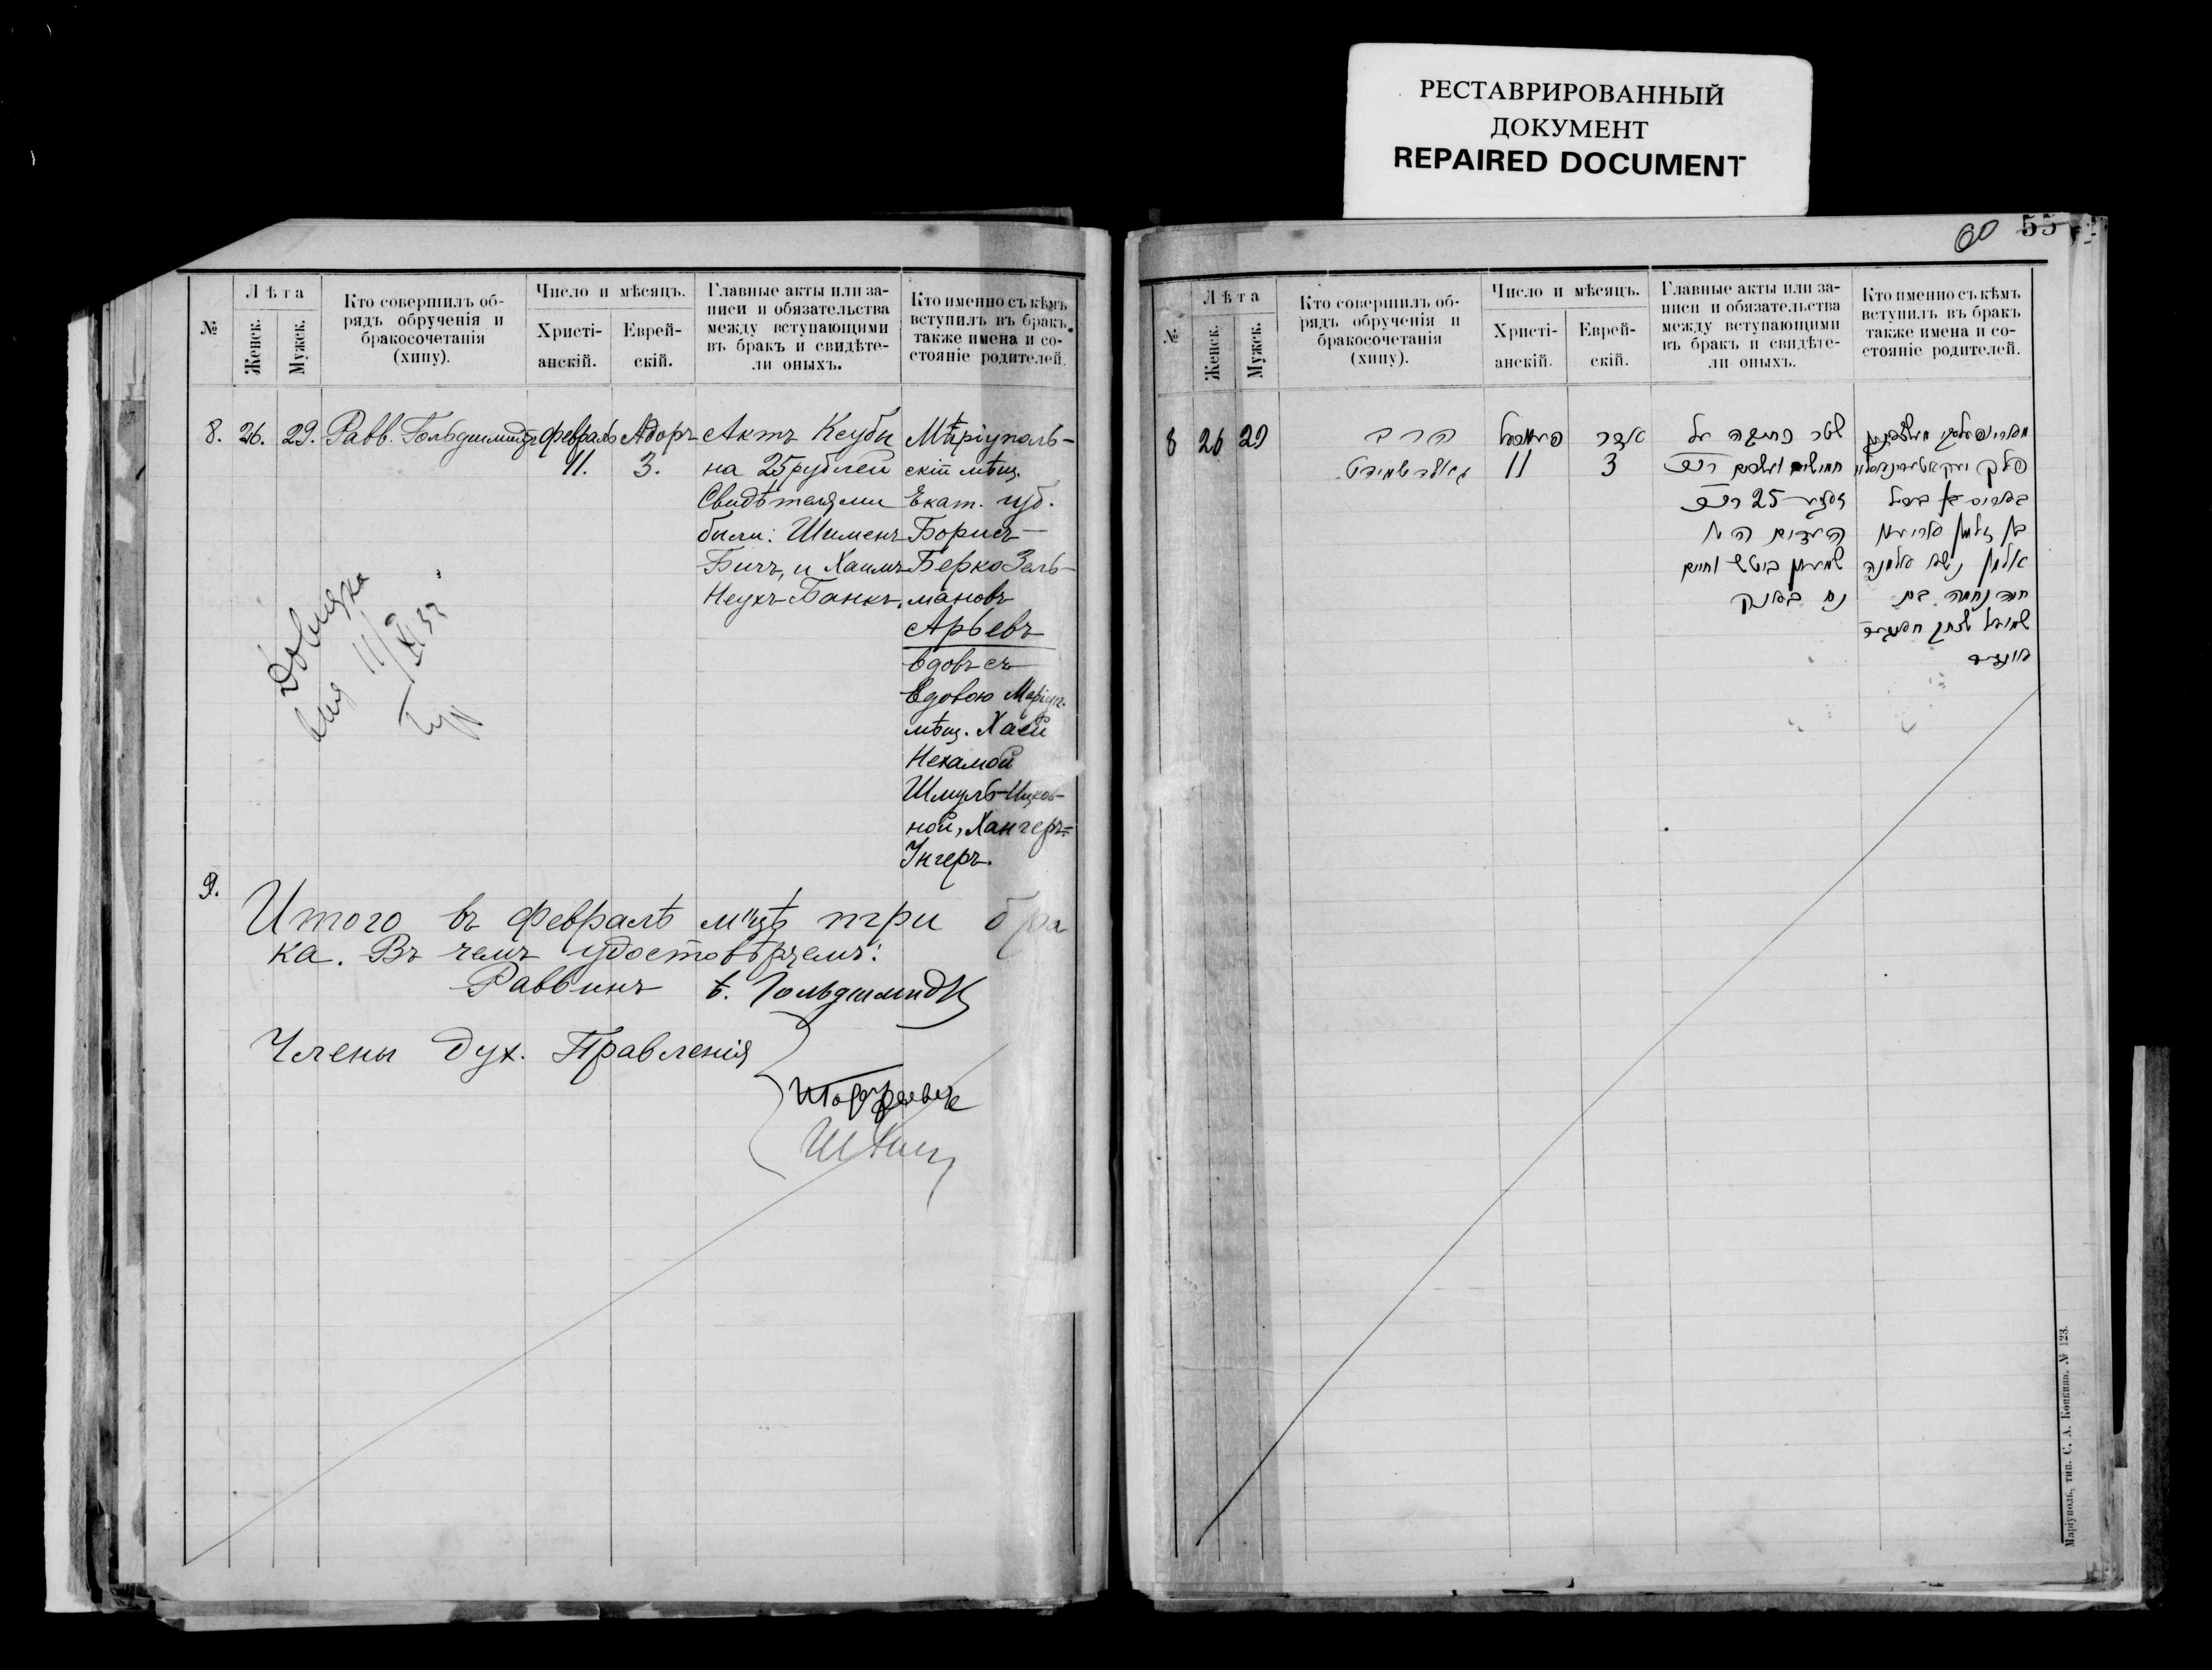 РЕСТАВРИРОВАННЫЙ
ДОКУМЕНТ
REPAIRED DOCUMENT
60 55
№
Лѣта
Женск.
Мужск.
Кто совершилъ об-
рядъ обрученія и
бракосочетанія
(хипу).
Число и мѣсяцъ.
Христі-
анскій.
Еврей-
скій.
Главные акты или за-
писи и обязательства
между вступающими
въ бракъ и свидѣте-
ли оныхъ.
Кто именно съ кѣмъ
вступилъ въ бракъ,
также имена и со-
стояніе родителей.
8.
26.
29.
Равв. Гольдшмидтъ
Февраль
11.
Адоръ
3.
Актъ Ксубы
на 25 рублей
Свидѣтелями
были: Шименъ
Бичъ, и Хаимъ
Неухъ Банкъ.
Мѣріуполь-
скій мѣщ.
Екат. губ.
Борисъ
Берко Заль-
мановъ
Арьевъ
вдовъ съ
вдовою Маріуп.
мѣщ. Хаей
Нехамой
Шмуль-Ицков-
ной, Хангеръ=
Унгеръ.
9.
Итого въ Февралѣ м-цѣ три бра
ка. Въ чемъ удостовѣряемъ:
Раввинъ Гольдшмидтъ
Члены Дух. Правленія
№
Лѣта
Женск.
Мужск.
Кто совершилъ об-
рядъ обрученія и
бракосочетанія
(хипу).
Число и мѣсяцъ.
Христі-
анскій.
Еврей-
скій.
Главные акты или за-
писи и обязательства
между вступающими
въ бракъ и свидѣте-
ли оныхъ.
Кто именно съ кѣмъ
вступилъ въ бракъ
также имена и со-
стояніе родителей.
8
26
29
הרב
גאלדשמידט
11
אדר
3
שטר כתובה על
25
העדים ה״ה
וחיים
נח באנק
בן זלמן
אלמן נשא אלמנה
חיה נחמה בת
שמואל יצחק
Маріуполь, тип. С. А. Копкина. № 123.